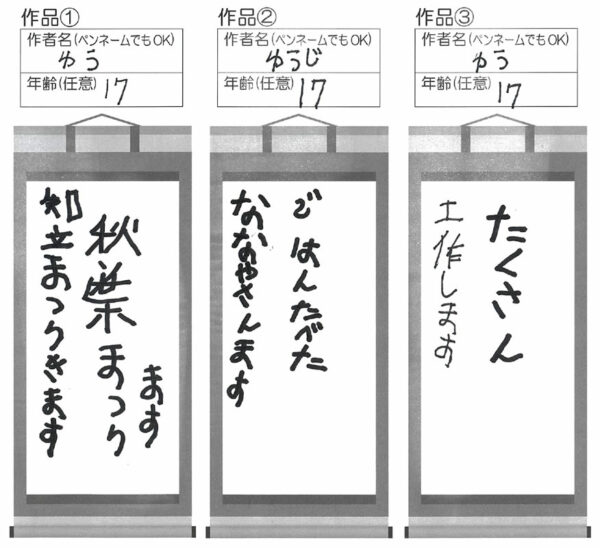 作品①
作者名(ペンネームでもOK)
ゆう
年齢(任意) 17
ます
秋葉まつり
知立まつりきます
作品②
作者名(ペンネームでもOK)
ゆうじ
年齢(任意) 17
ごはんたべた
ななやさんます
作品③
作者名(ペンネームでもOK)
ゆう
年齢(任意) 17
たくさん
工作します